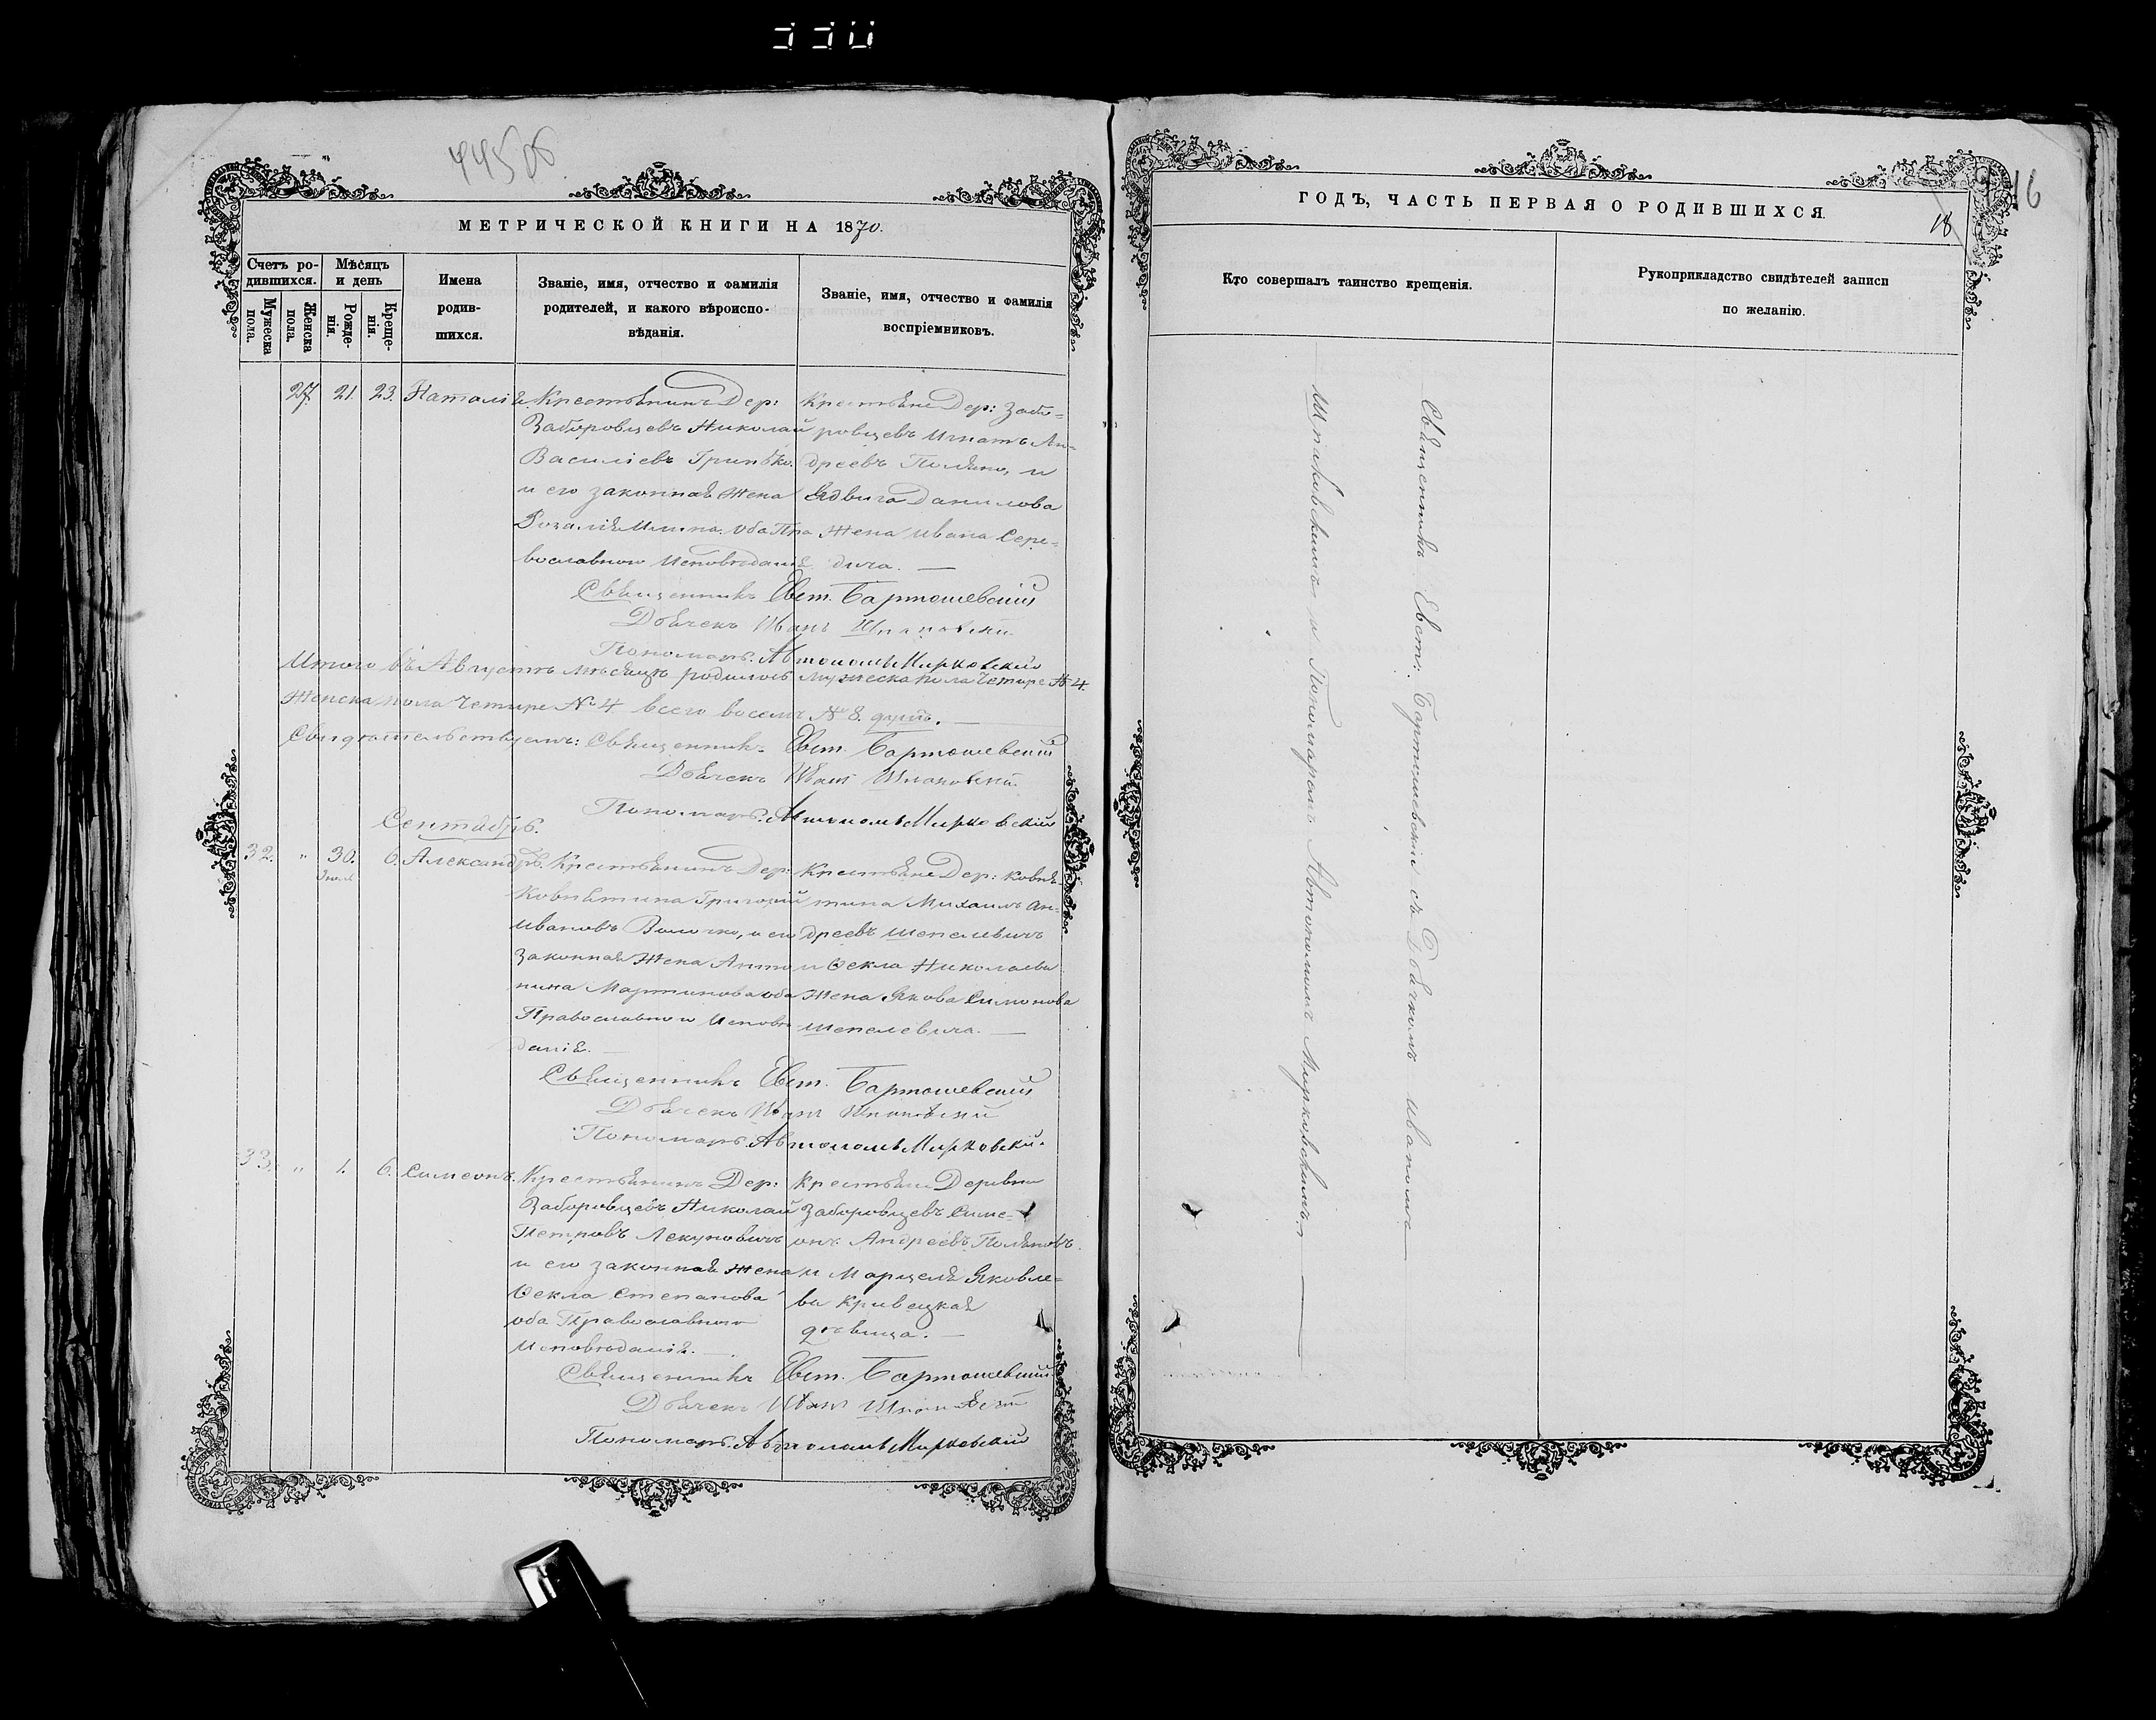 44508
МЕТРИЧЕСКОЙ КНИГИ НА 1870.
Счетъ ро-
дившихся.
Мѣсяцъ
и день
Мужеска
пола.
Женска
пола.
Рожде-
нія.
Креще-
нія.
Имена
родив-
шихся.
Званіе, имя, отчество и фамилія
родителей, и какого вѣроиспо-
вѣданія.
Званіе, имя, отчество и фамилія
воспріемниковъ.
27. 21. 23. Наталія
Крестьянинъ Дер:
Заборовцевъ Николай
Василіевъ Гринько.
и его законная жена
Розалія Ильина. Оба Пра
вославного Исповѣданія
Крестьяне Дер: Забо-
ровцевъ Игнатъ Ан-
дреевъ и
Ядвига Данилова
жена Ивана Сере-
дича. —
Священникъ Евст. Бартошевскій
Дьячекъ Иванъ Шпаковскій
Пономарь. Автономъ Мирковскій
Итого въ Августѣ мѣсяцѣ родилось мужеска пола Четыре № 4.
Женска пола Четыре № 4 всего восемь № 8. душъ. —
Свидѣтельствуемъ: Священникъ Евст. Бартошевскій
Дьячекъ Иванъ Шпаковскій
Пономарь. Автономъ Мирковскій
Сентябрь.
32. " 30. 6. Александръ.
Крестьянинъ Дер:
Ковнятина Григорій
Ивановъ и его
законная жена Анто
нина Мартинова оба
Православного Исповѣ
данія. —
Крестьяне Дер: Ковня-
тина Михаилъ Ан-
дреевъ Шепелевичъ
и Ѳекла Николаева
жена Якова Симонова
Шепелевича. —
Священникъ Евст. Бартошевскій
Дьячекъ Иванъ Шпаковскій
Пономарь. Автономъ Мирковскій.
33. " 1. 6. Симеонъ.
Крестьянинъ Дер:
Заборовцевъ Николай
Петровъ Лекуновичъ
и его законная жена
Ѳекла Степанова
оба Православного
Исповѣданія. —
Крестьяне Деревни
Заборовцевъ Симе-
онъ Андреевъ
и Марцеля Яковле-
ва Кривецкая
дѣвица. —
Священникъ Евст. Бартошевскій
Дьячекъ Иванъ Шпаковскій
Пономарь. Автономъ Мирковскій
16
18
ГОДЪ, ЧАСТЬ ПЕРВАЯ О РОДИВШИХСЯ.
Кто совершалъ таинство крещенія.
Рукоприкладство свидѣтелей записи
по желанію.
Священникъ Евст: Бартошевскій съ Дьячкомъ Иваномъ
Шпаковскимъ и Пономаремъ Автономомъ Мирковскимъ. —